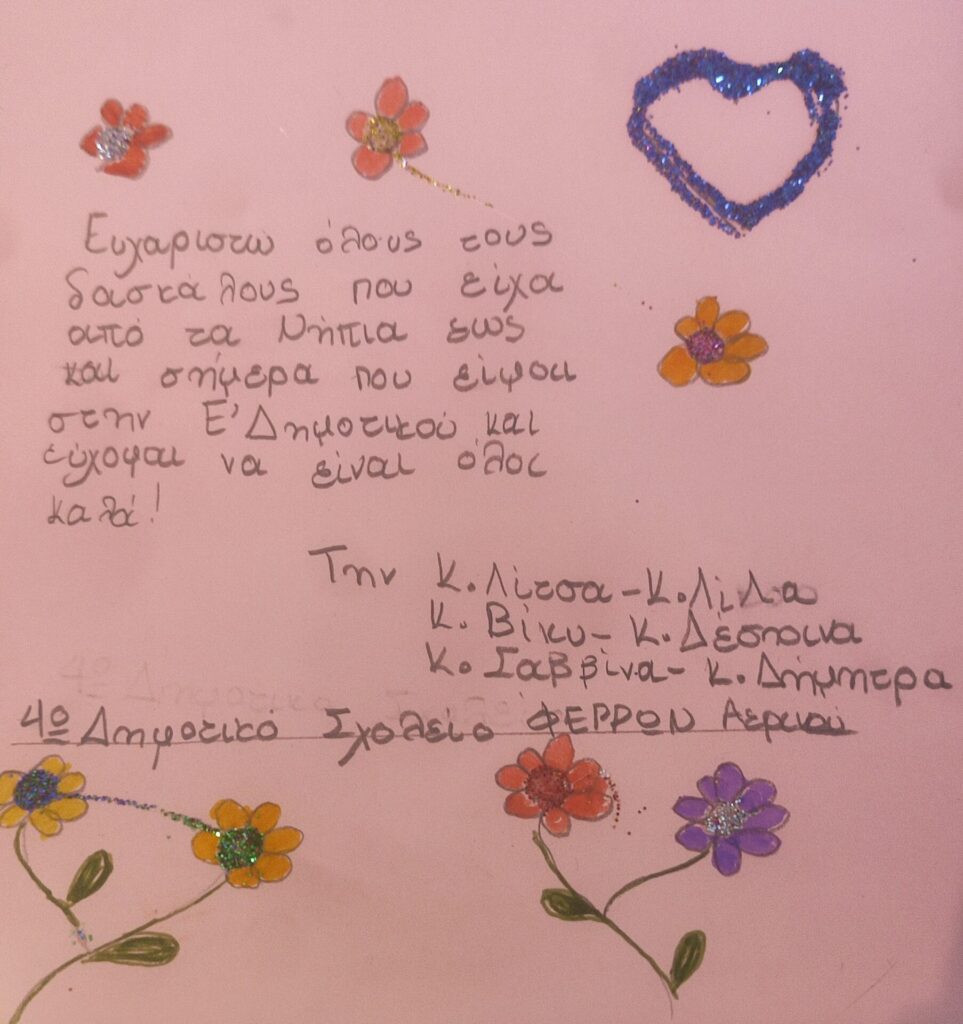 Ευχαριστώ όλους τους
δασκάλους που είχα
από τα Νήπια εως
και σήμερα που είμαι
στην Ε' Δημοτικού και
εύχομαι να είναι όλος
καλά!
Την Κ. Λίτσα - Κ. Λίλα
Κ. Βίκυ - Κ. Δέσποινα
Κ. Σαββίνα - Κ. Δήμητρα
4º Δημοτικό Σχολείο ΦΕΡΡΩΝ